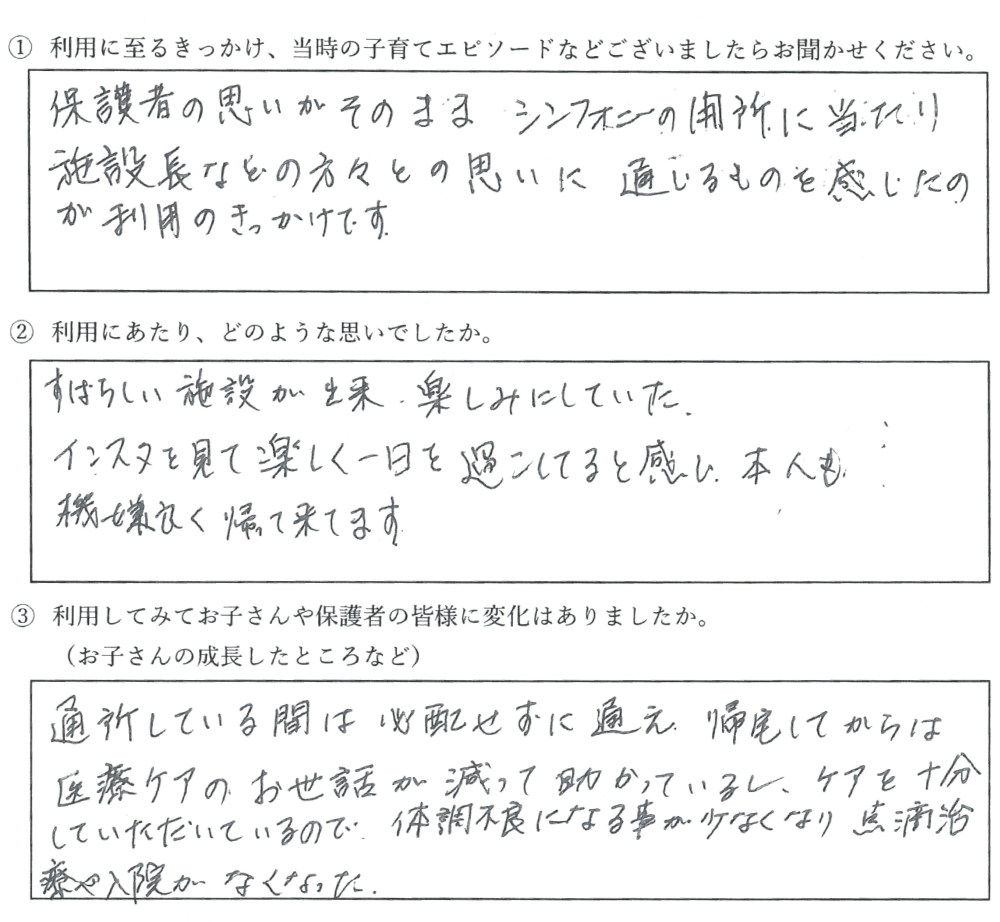 ① 利用に至るきっかけ、当時の子育てエピソードなどございましたらお聞かせください。
保護者の思いがそのまま シンフォニーの開所に当たり
施設長などの方々との思いに 通じるものを感じたの
が利用のきっかけです.
② 利用にあたり、どのような思いでしたか。
すばらしい施設が出来.楽しみにしていた.
インスタを見て楽しく一日を過ごしてると感じ.本人も
機嫌良く帰って来てます.
③ 利用してみてお子さんや保護者の皆様に変化はありましたか。
（お子さんの成長したところなど）
通所している間は心配せずに通え.帰宅してからは
医療ケアのお世話が減って助かっているし、ケアを十分
していただいているので.体調不良になる事が少なくなり 点滴治
療や入院がなくなった.